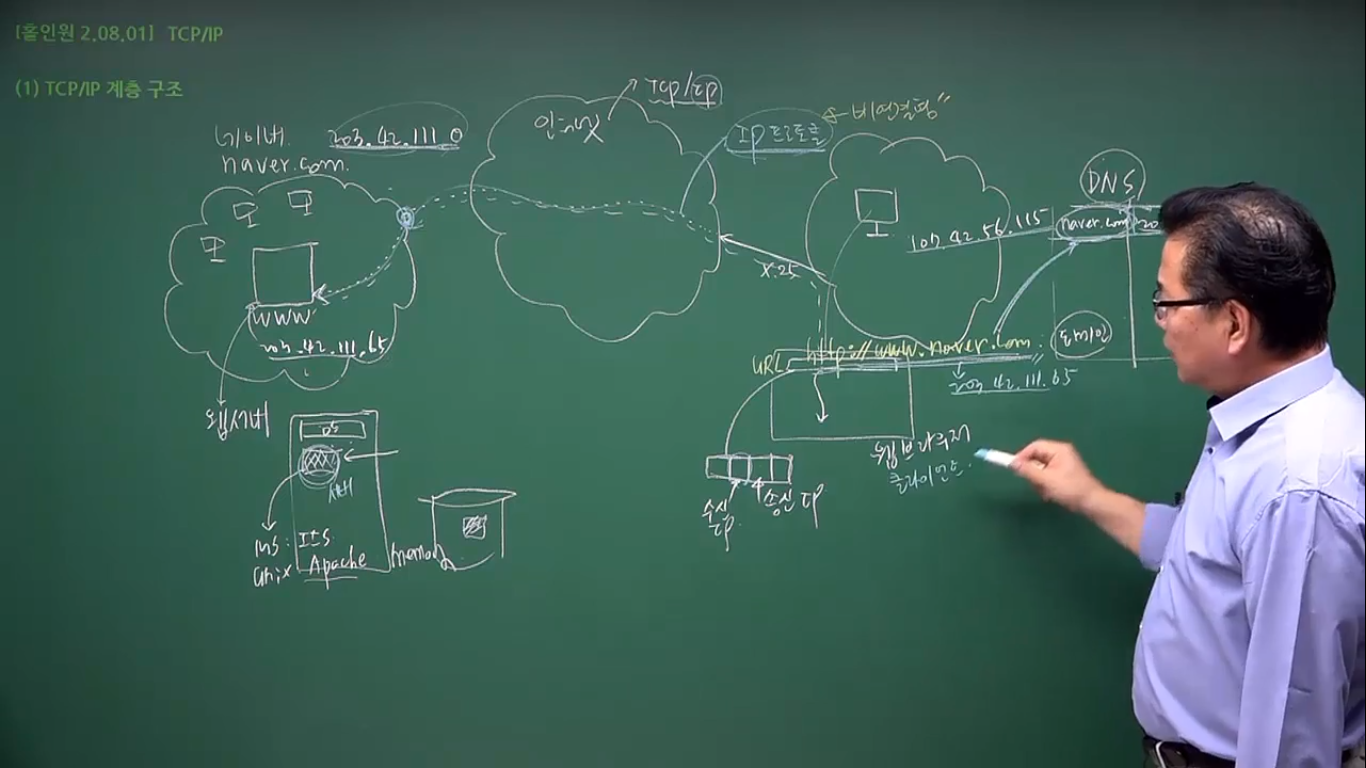 [홀인원 2.08.01] TCP/IP
(1) TCP/IP 계층 구조
네이버
naver.com.
203.42.111.0
인터넷
TCP/IP
IP 프로토콜
← 비연결형"
DNS
naver.com 20
도메인
WWW
203.42.111.65
웹서버
X.25
107.42.56.115
URL http://www.naver.com.
203.42.111.65
웹브라우저
클라이언트
수신 IP
송신 IP
OS
서버
MS: IIS
Unix Apache
memory